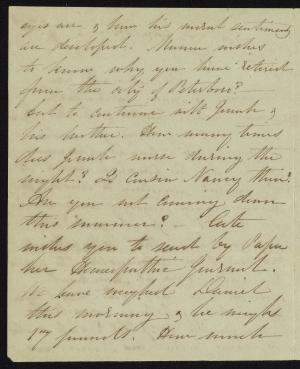 eyes are & how his moral sentiments
are developed. Mama wishes
to know why you have retired
from the city of Peterboro?
But to continue with &
his brother. How many times
does nurse during the
night? Is Cousin Nancy there?
Are you not coming down
this summer? — Cate
wishes you to send by Papa
her Homeopathic Journal.
We have weighed Daniel
this morning & he weighs
17 pounds. How much